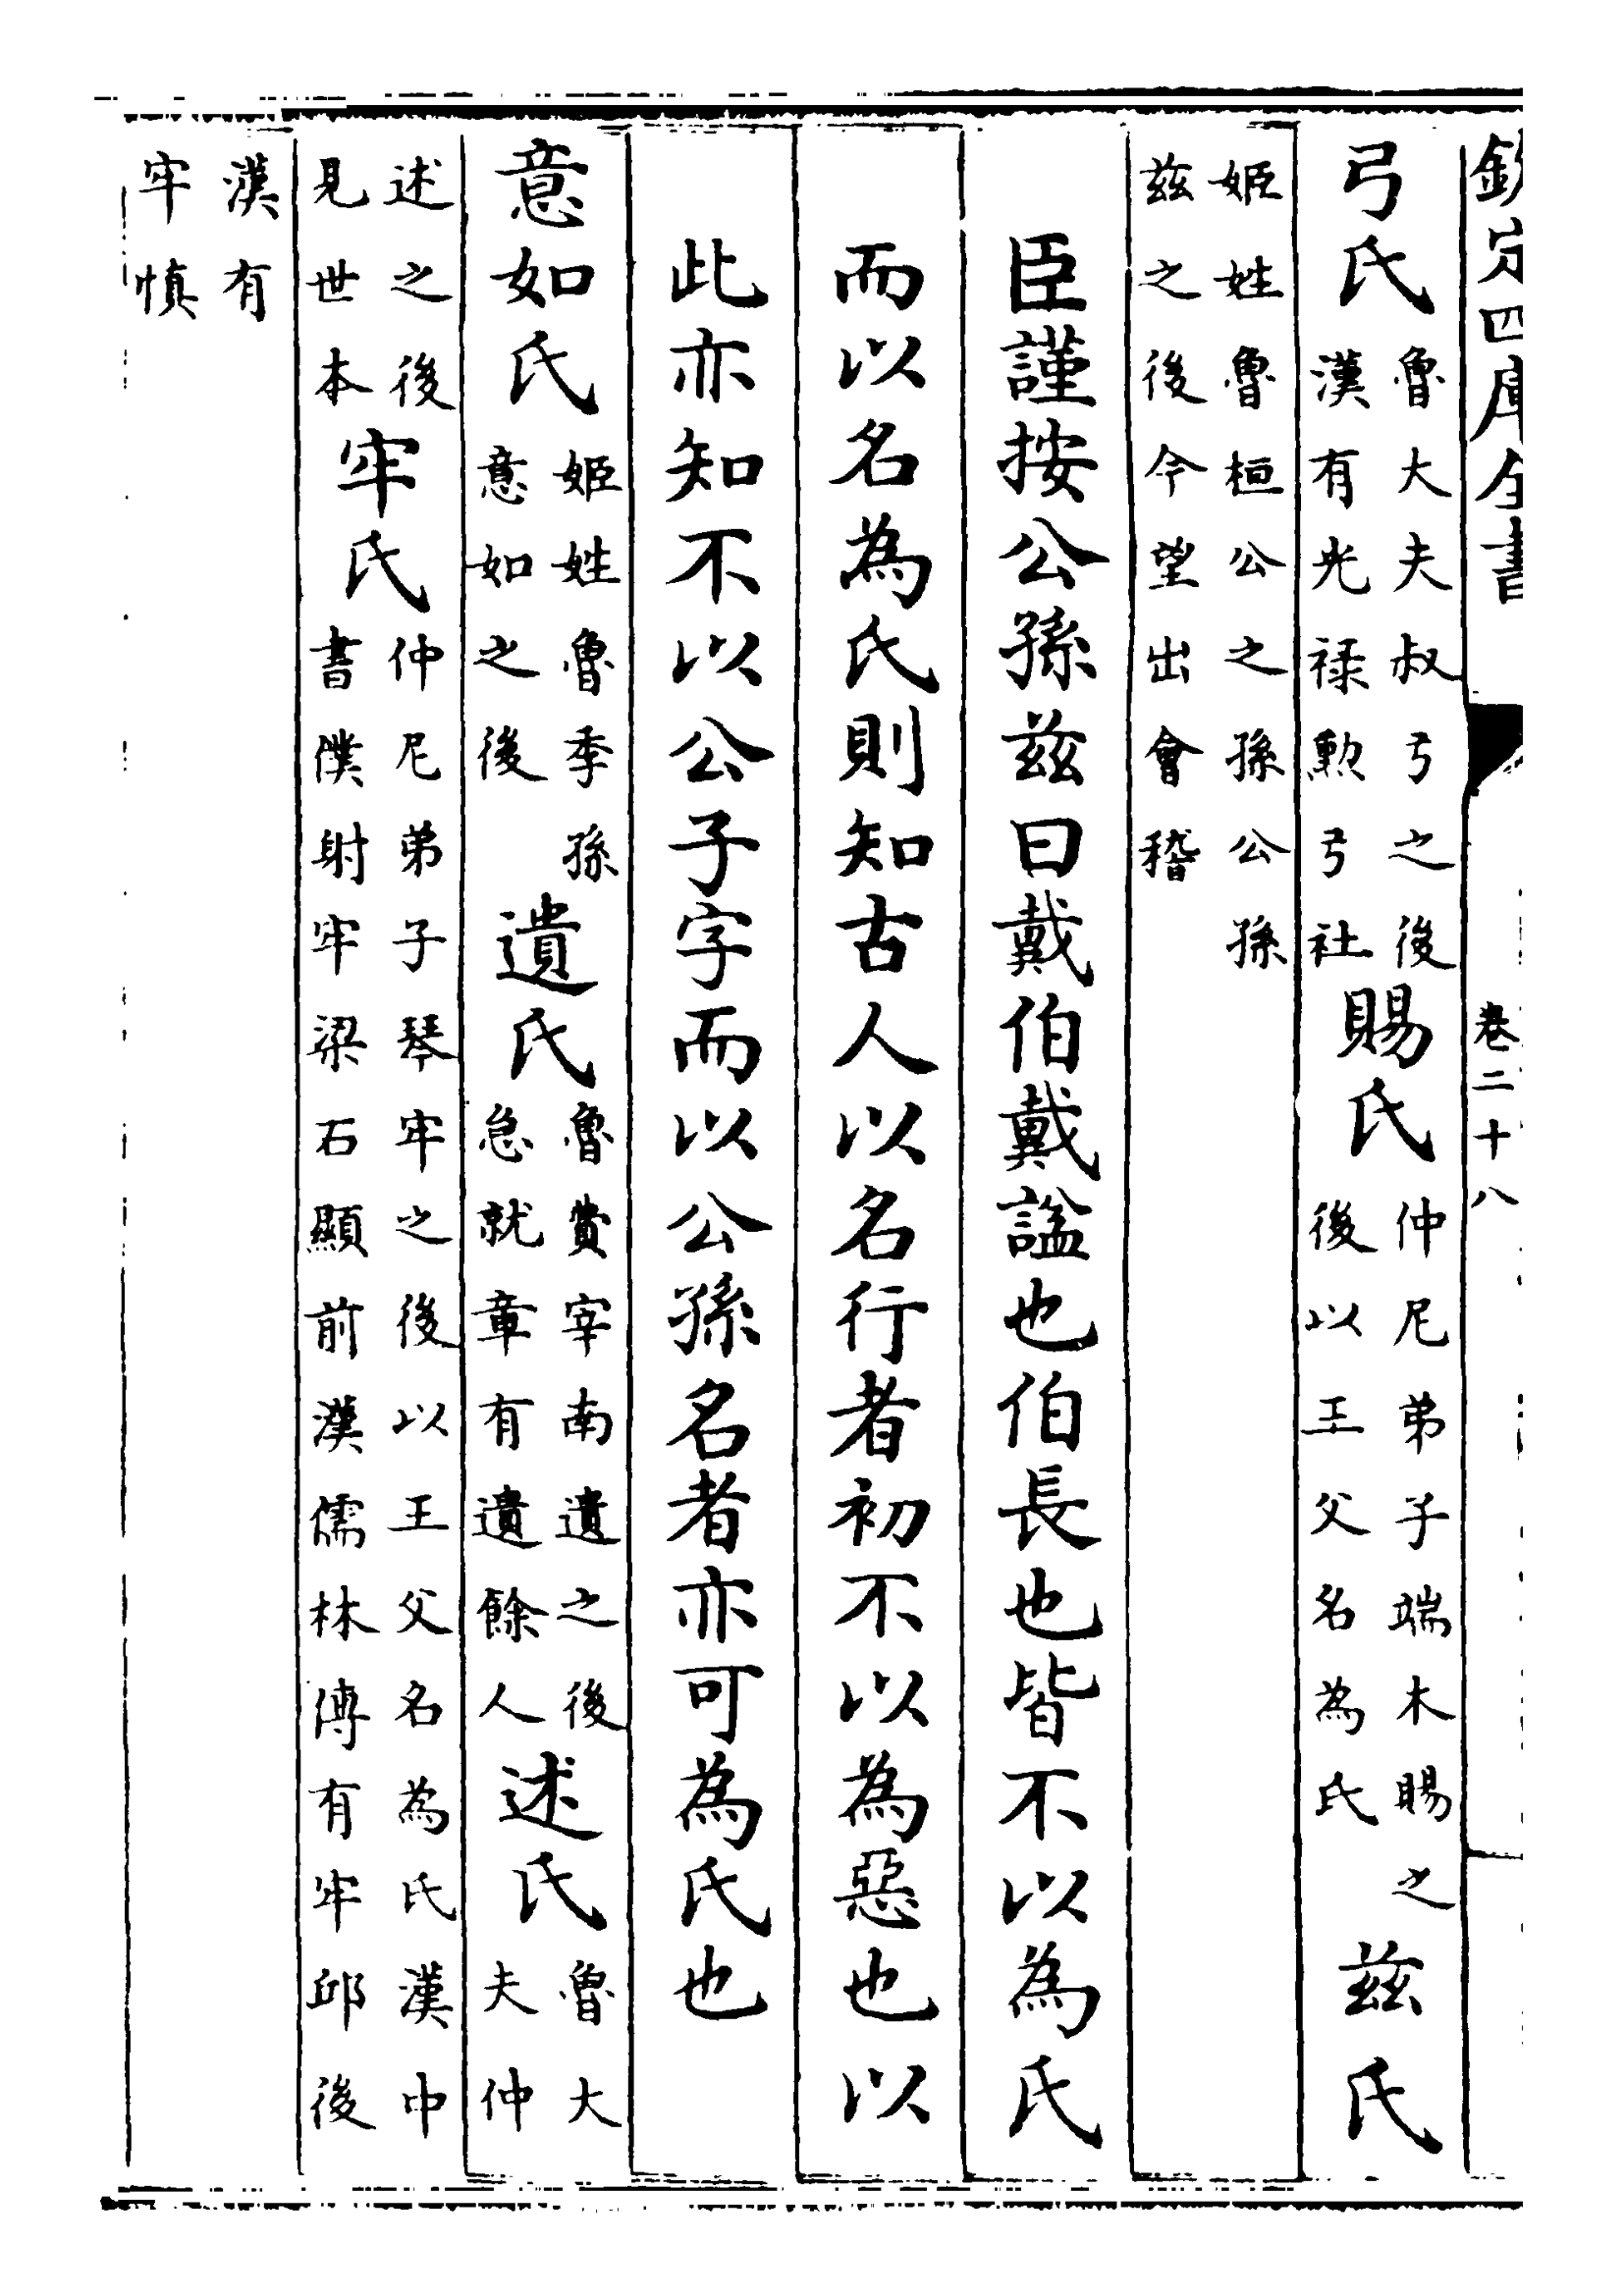 欽定四庫全書
卷二十八
弓氏魯大夫叔弓之後漢有光祿勲弓社賜氏仲尼弟子端木賜之後以王父名為氏兹氏
姬姓魯桓公之孫公孫兹之後今望出會稽
臣謹按公孫兹曰戴伯戴諡也伯長也皆不以為氏
而以名為氏則知古人以名行者初不以為惡也以
此亦知不以公子字而以公孫名者亦可為氏也
意如氏姬姓魯季孫意如之後遺氏魯費宰南遺之後急就章有遺餘人述氏魯大夫仲
述之後見世本牢氏仲尼弟子琴牢之後以王父名為氏漢中書僕射牢梁石顯前漢儒林傳有牢邱後
漢有牢慎